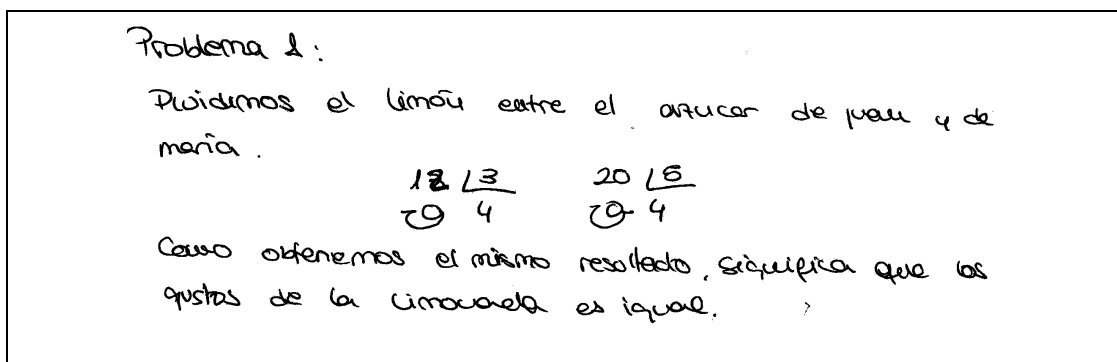 Problema 1:
Dividimos el limón entre el azucar de juan y de
maría.
12 | 3 20 | 5
0 4 0 4
Como obtenemos el mismo resoltado, significa que los
gustos de la limonada es igual.